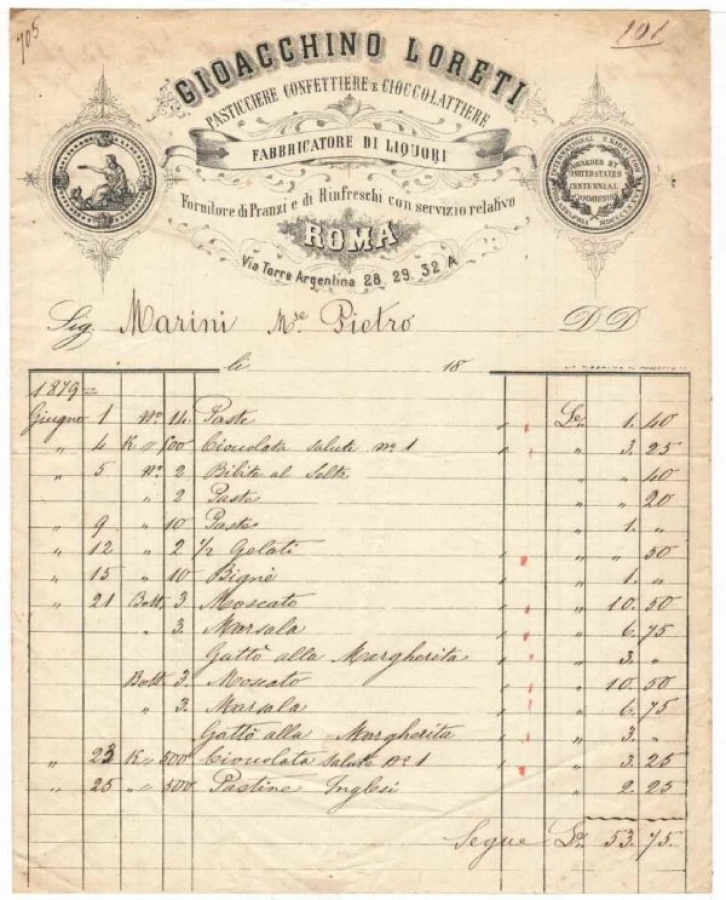 705
101
GIOACCHINO LORETI
PASTICCIERE CONFETTIERE E CIOCCOLATTIERE
FABBRICATORE DI LIQUORI
Fornitore di Pranzi e di Rinfreschi con servizio relativo
ROMA
Via Torre Argentina 28 29 32 A
INTERNATIONAL EXHIBITION
PHILADELPHIA MDCCCLXXVI
AWARDED BY
UNITED STATES
CENTENNIAL
COMMISSION
Sig. Marini Mse. Pietro DD
li 18
1879
Giugno 1 No. 14. Paste " Ln 1. 40
" 4 K " 500 Cioccolata salute no 1 " " 3. 25
" 5 No. 2 Bibite al Seltz " " 40
" 2 Paste " " 20
" 9 " 10 Paste " 1. "
" 12 " 2 1/2 Gelati " " " 50
" 15 " 10 Bignè " " 1. "
" 21 Bott. 3 Moscato " " 10. 50
" 3. Marsala " " 6. 75
Gattò alla Margherita " " 3. "
Bott. 3. Moscato " " 10. 50
" 3. Marsala " " 6. 75
Gattò alla Margherita " " 3. "
" 23 K " 500 Cioccolata salute No 1 " " 3. 25
" 25 " " 500 Pastine Inglesi " 2. 25
Segue Ln 53. 75.